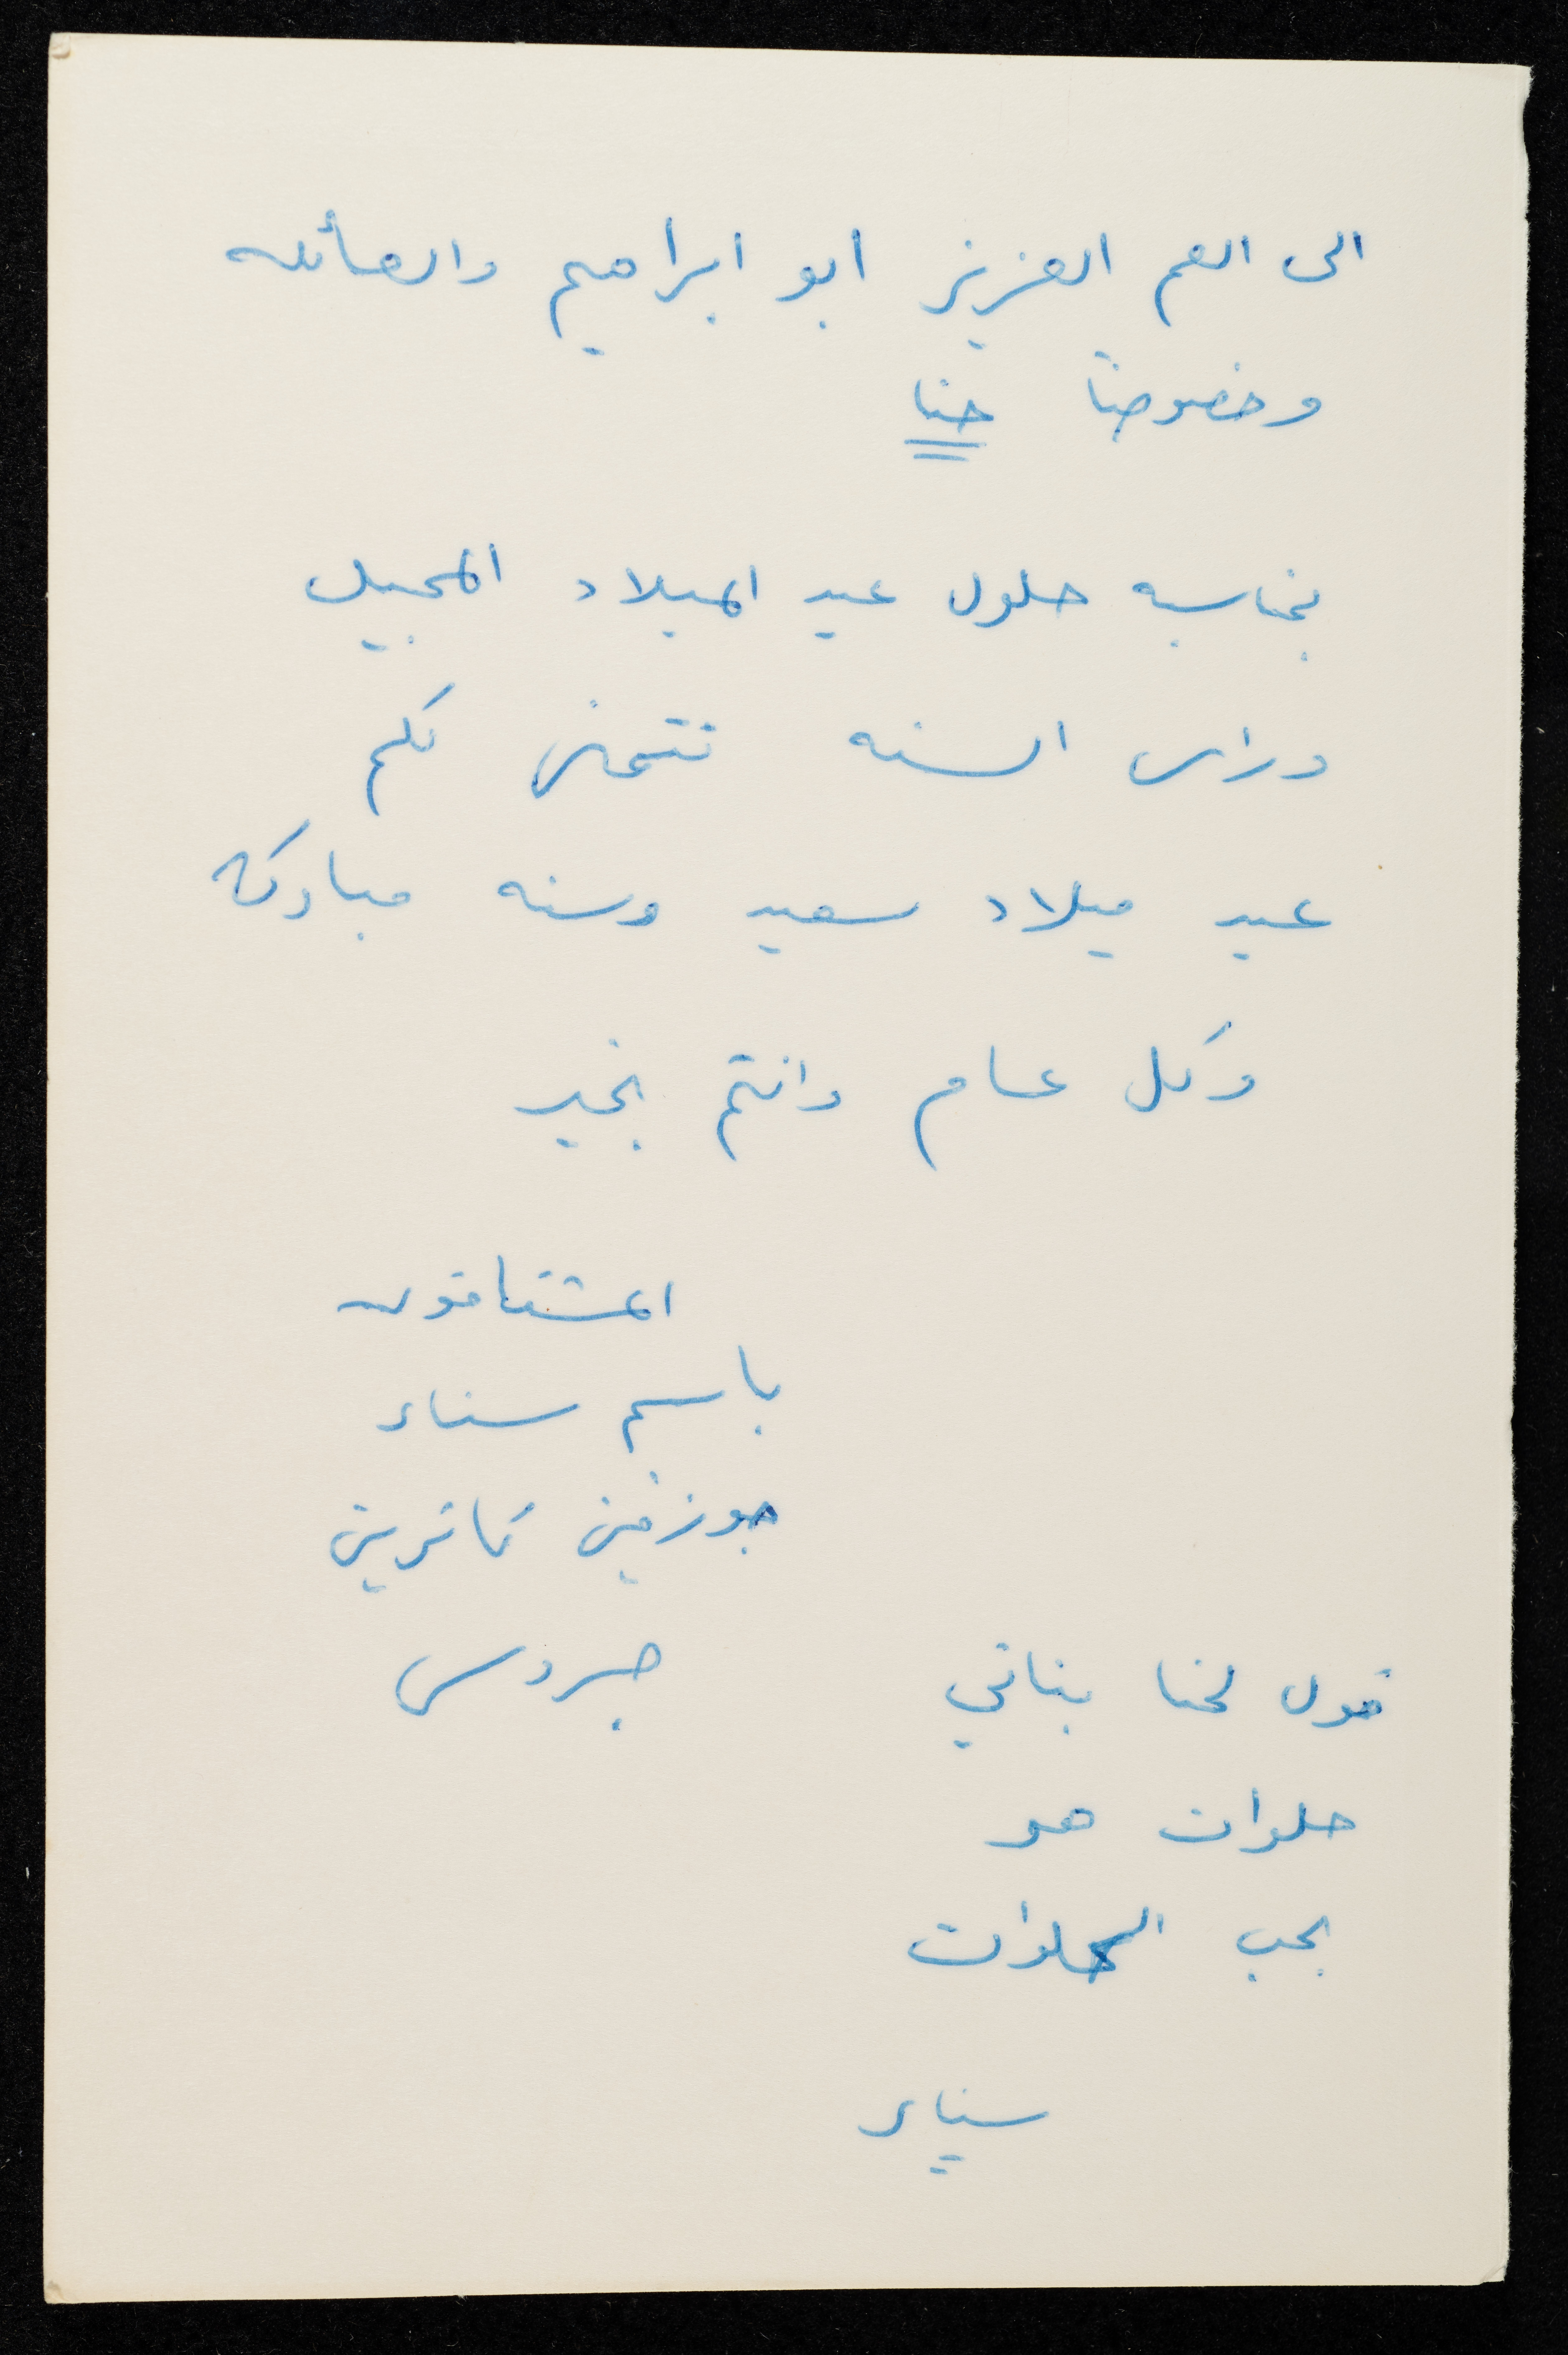 الى العم العزيز ابو ابراهيم والعائله
وخصوصاً حنا
بمناسبه حلول عيد الميلاد المجيد
وراس السنه نتمنى لكم
عيد ميلاد سعيد وسنه مباركه
وكل عام وانتم بخير
المشتاقون
باسم سناء
جوزفين كاترين
جبروس
قول لحنا بناتي
حلوات هو
بحب الحلوات